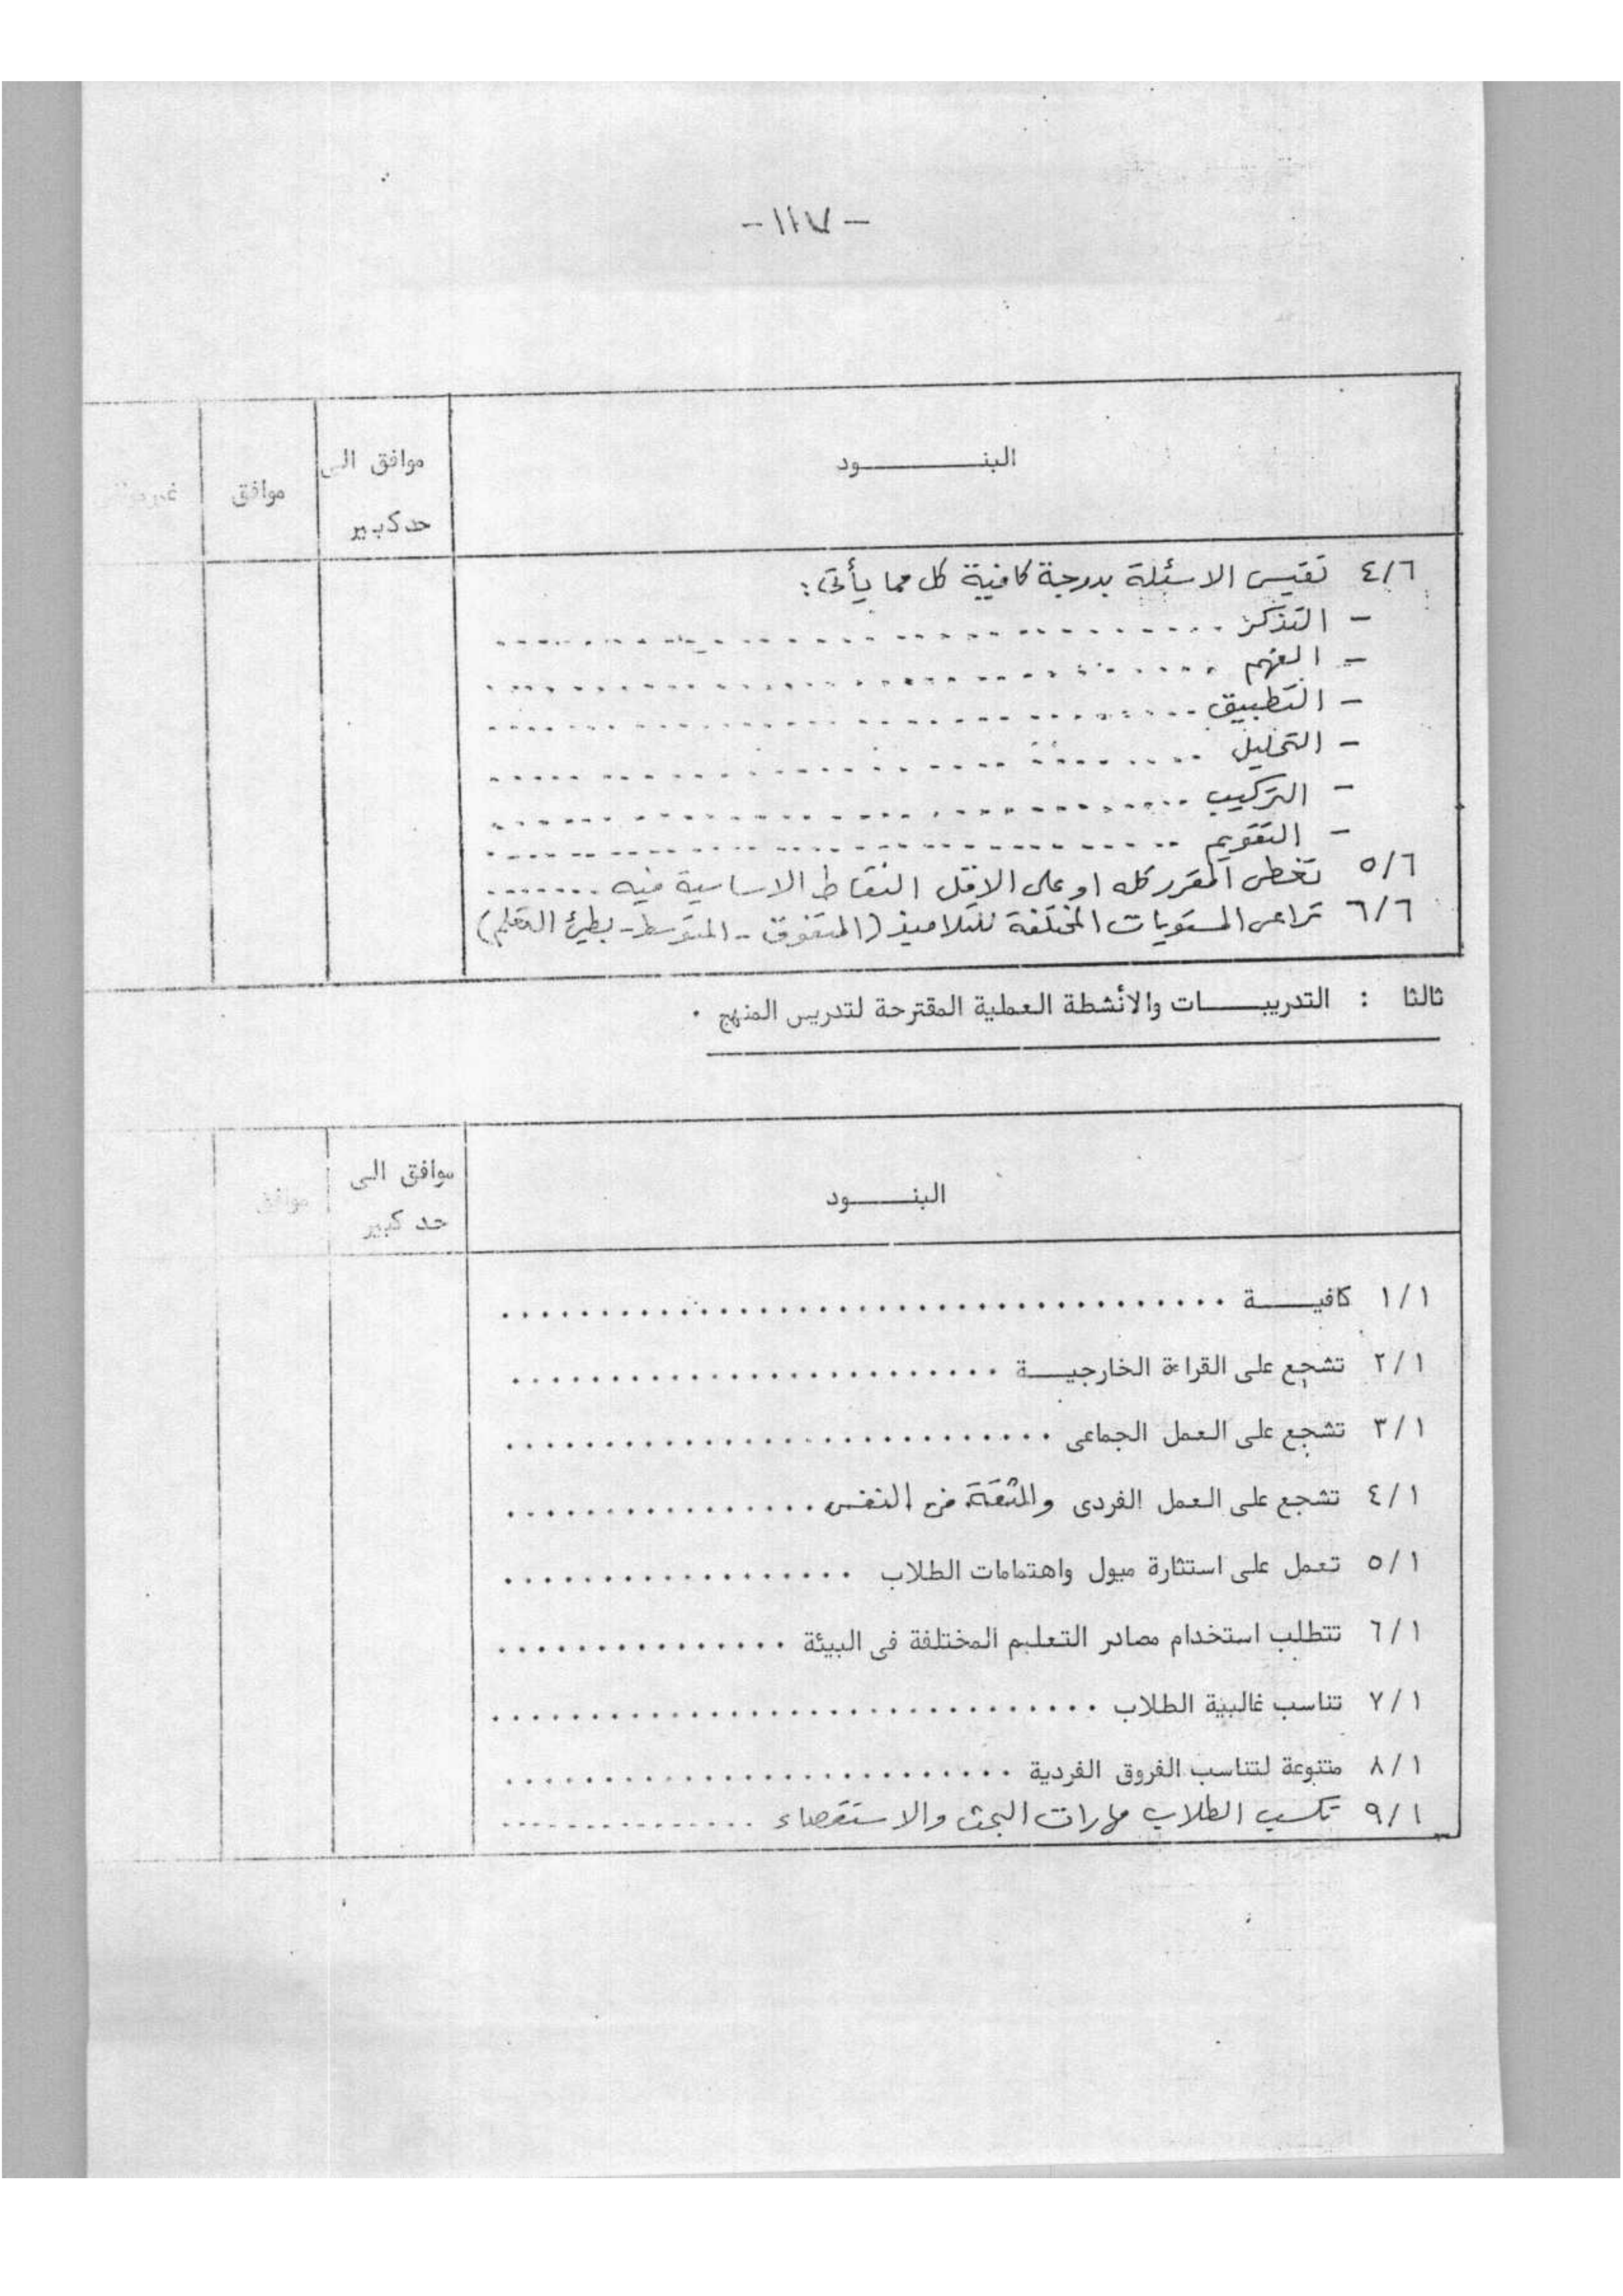 - ١١٧ -
البنــــــــود
موافق الى
حد كبير
موافق
غير موافق
٤/٦ تقيس الاسئلة بدرجة كافية كل مما يأتى :
- التذكر ........................
- الفهم ........................
- التطبيق ........................
- التحليل ........................
- التركيب ........................
- التقويم ........................
٥/٦ تغطى المقرر كله او على الاقل النقاط الاساسية فيه .......
٦/٦ تراعى المستويات المختلفة للتلاميذ (المتفوق - المتوسط - بطىء التعلم)
ثالثا : التدريبـــــات والأنشطة العملية المقترحة لتدريس المنهج .
البنـــــود
موافق الى
حد كبير
موافق
١/١ كافيـــــة ........................
٢/١ تشجع على القراءة الخارجيـــة ........................
٣/١ تشجع على العمل الجماعى ........................
٤/١ تشجع على العمل الفردى والثقة فى النفس ................
٥/١ تعمل على استثارة ميول واهتمامات الطلاب ..................
٦/١ تتطلب استخدام مصادر التعليم المختلفة فى البيئة ...............
٧/١ تناسب غالبية الطلاب ........................
٨/١ متنوعة لتناسب الفروق الفردية ........................
٩/١ تكسب الطلاب مهارات البحث والاستقصاء ...............